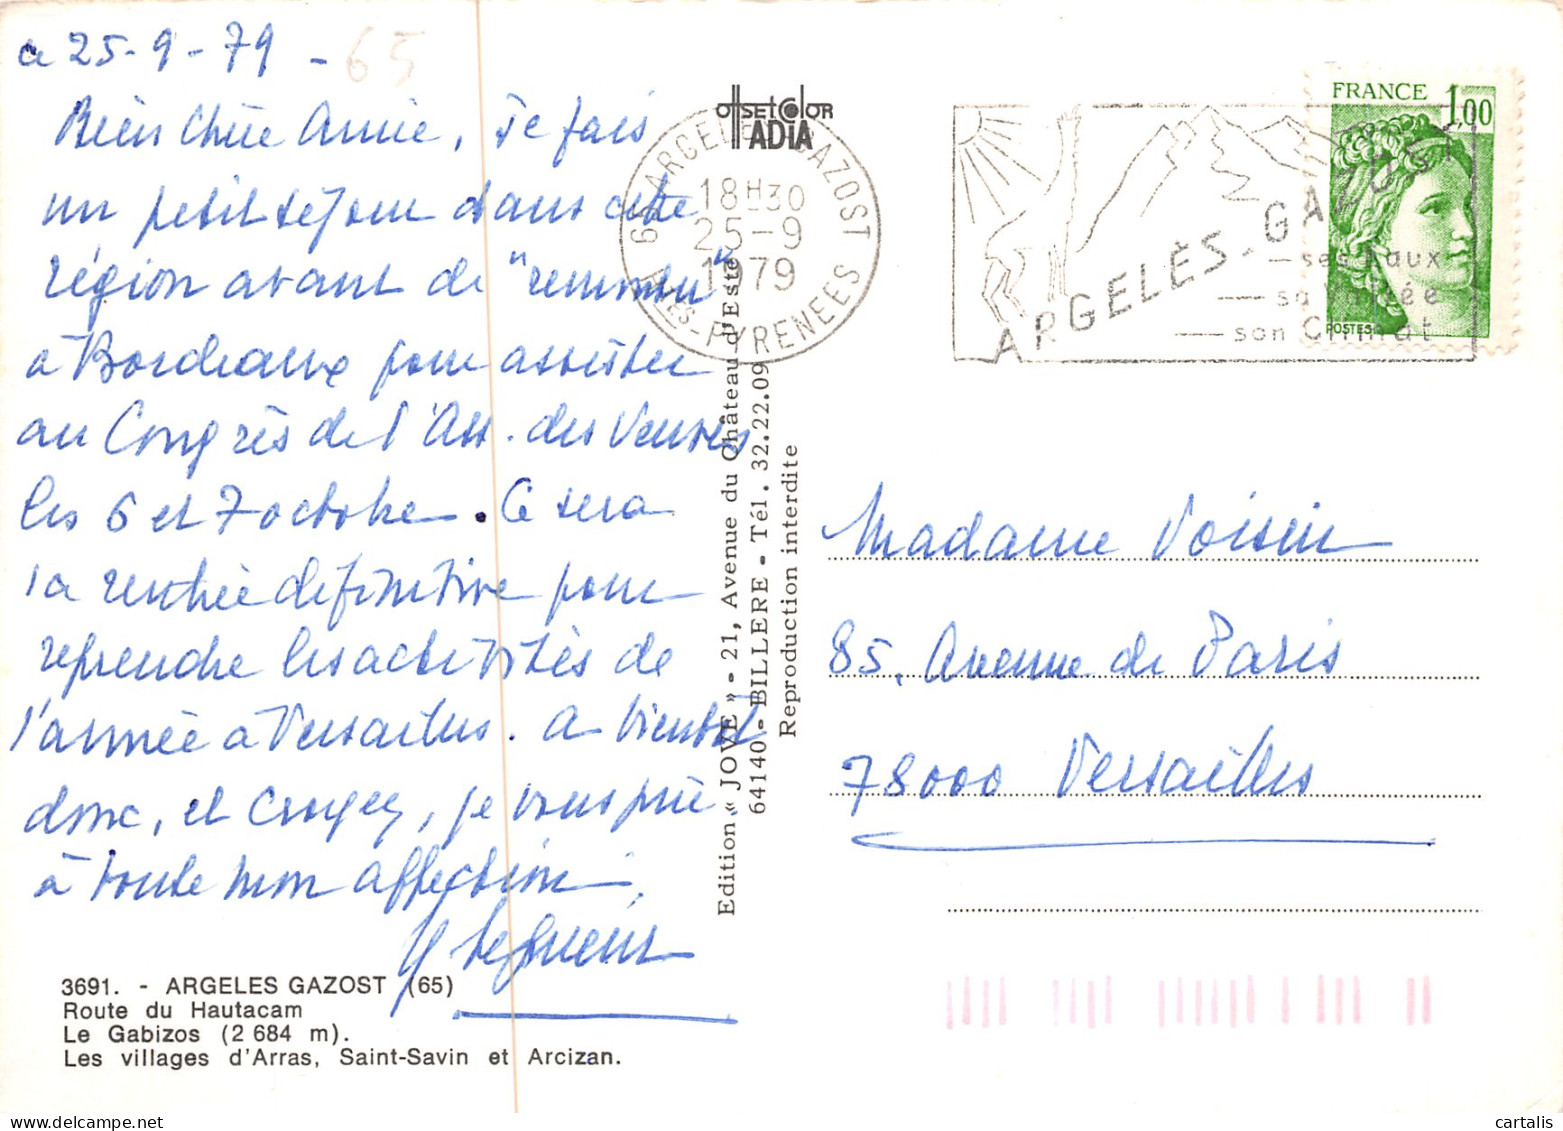 ce 25-9-79 - 65
Bien Chère Annie, Je fais
un petit séjour dans cette
région avant de "remonter"
à Bordeaux pour assister
au Congrès de l'Ass. des Veuves
les 6 et 7 octobre. Ce sera
la rentrée définitive pour
reprendre les activités de
l'armée à Versailles. A bientôt
donc, et croyez, je vous prie
à toute mon affection.
3691. - ARGELES GAZOST (65)
Route du Hautacam
Le Gabizos (2 684 m).
Les villages d'Arras, Saint-Savin et Arcizan.
OffSET COLOR
IADIA
65 ARGELES-GAZOST
18H30
25-9
1979
HTES-PYRENEES
Edition « JOVE » - 21, Avenue du Château d'Este
64140 - BILLERE - Tél. 32.22.09
Reproduction interdite
ARGELÈS-GAZOST
ses Eaux
sa Vallée
son Climat
FRANCE 1,00
POSTES
Madame Voisin
85, Avenue de Paris
78000 Versailles
cartalis